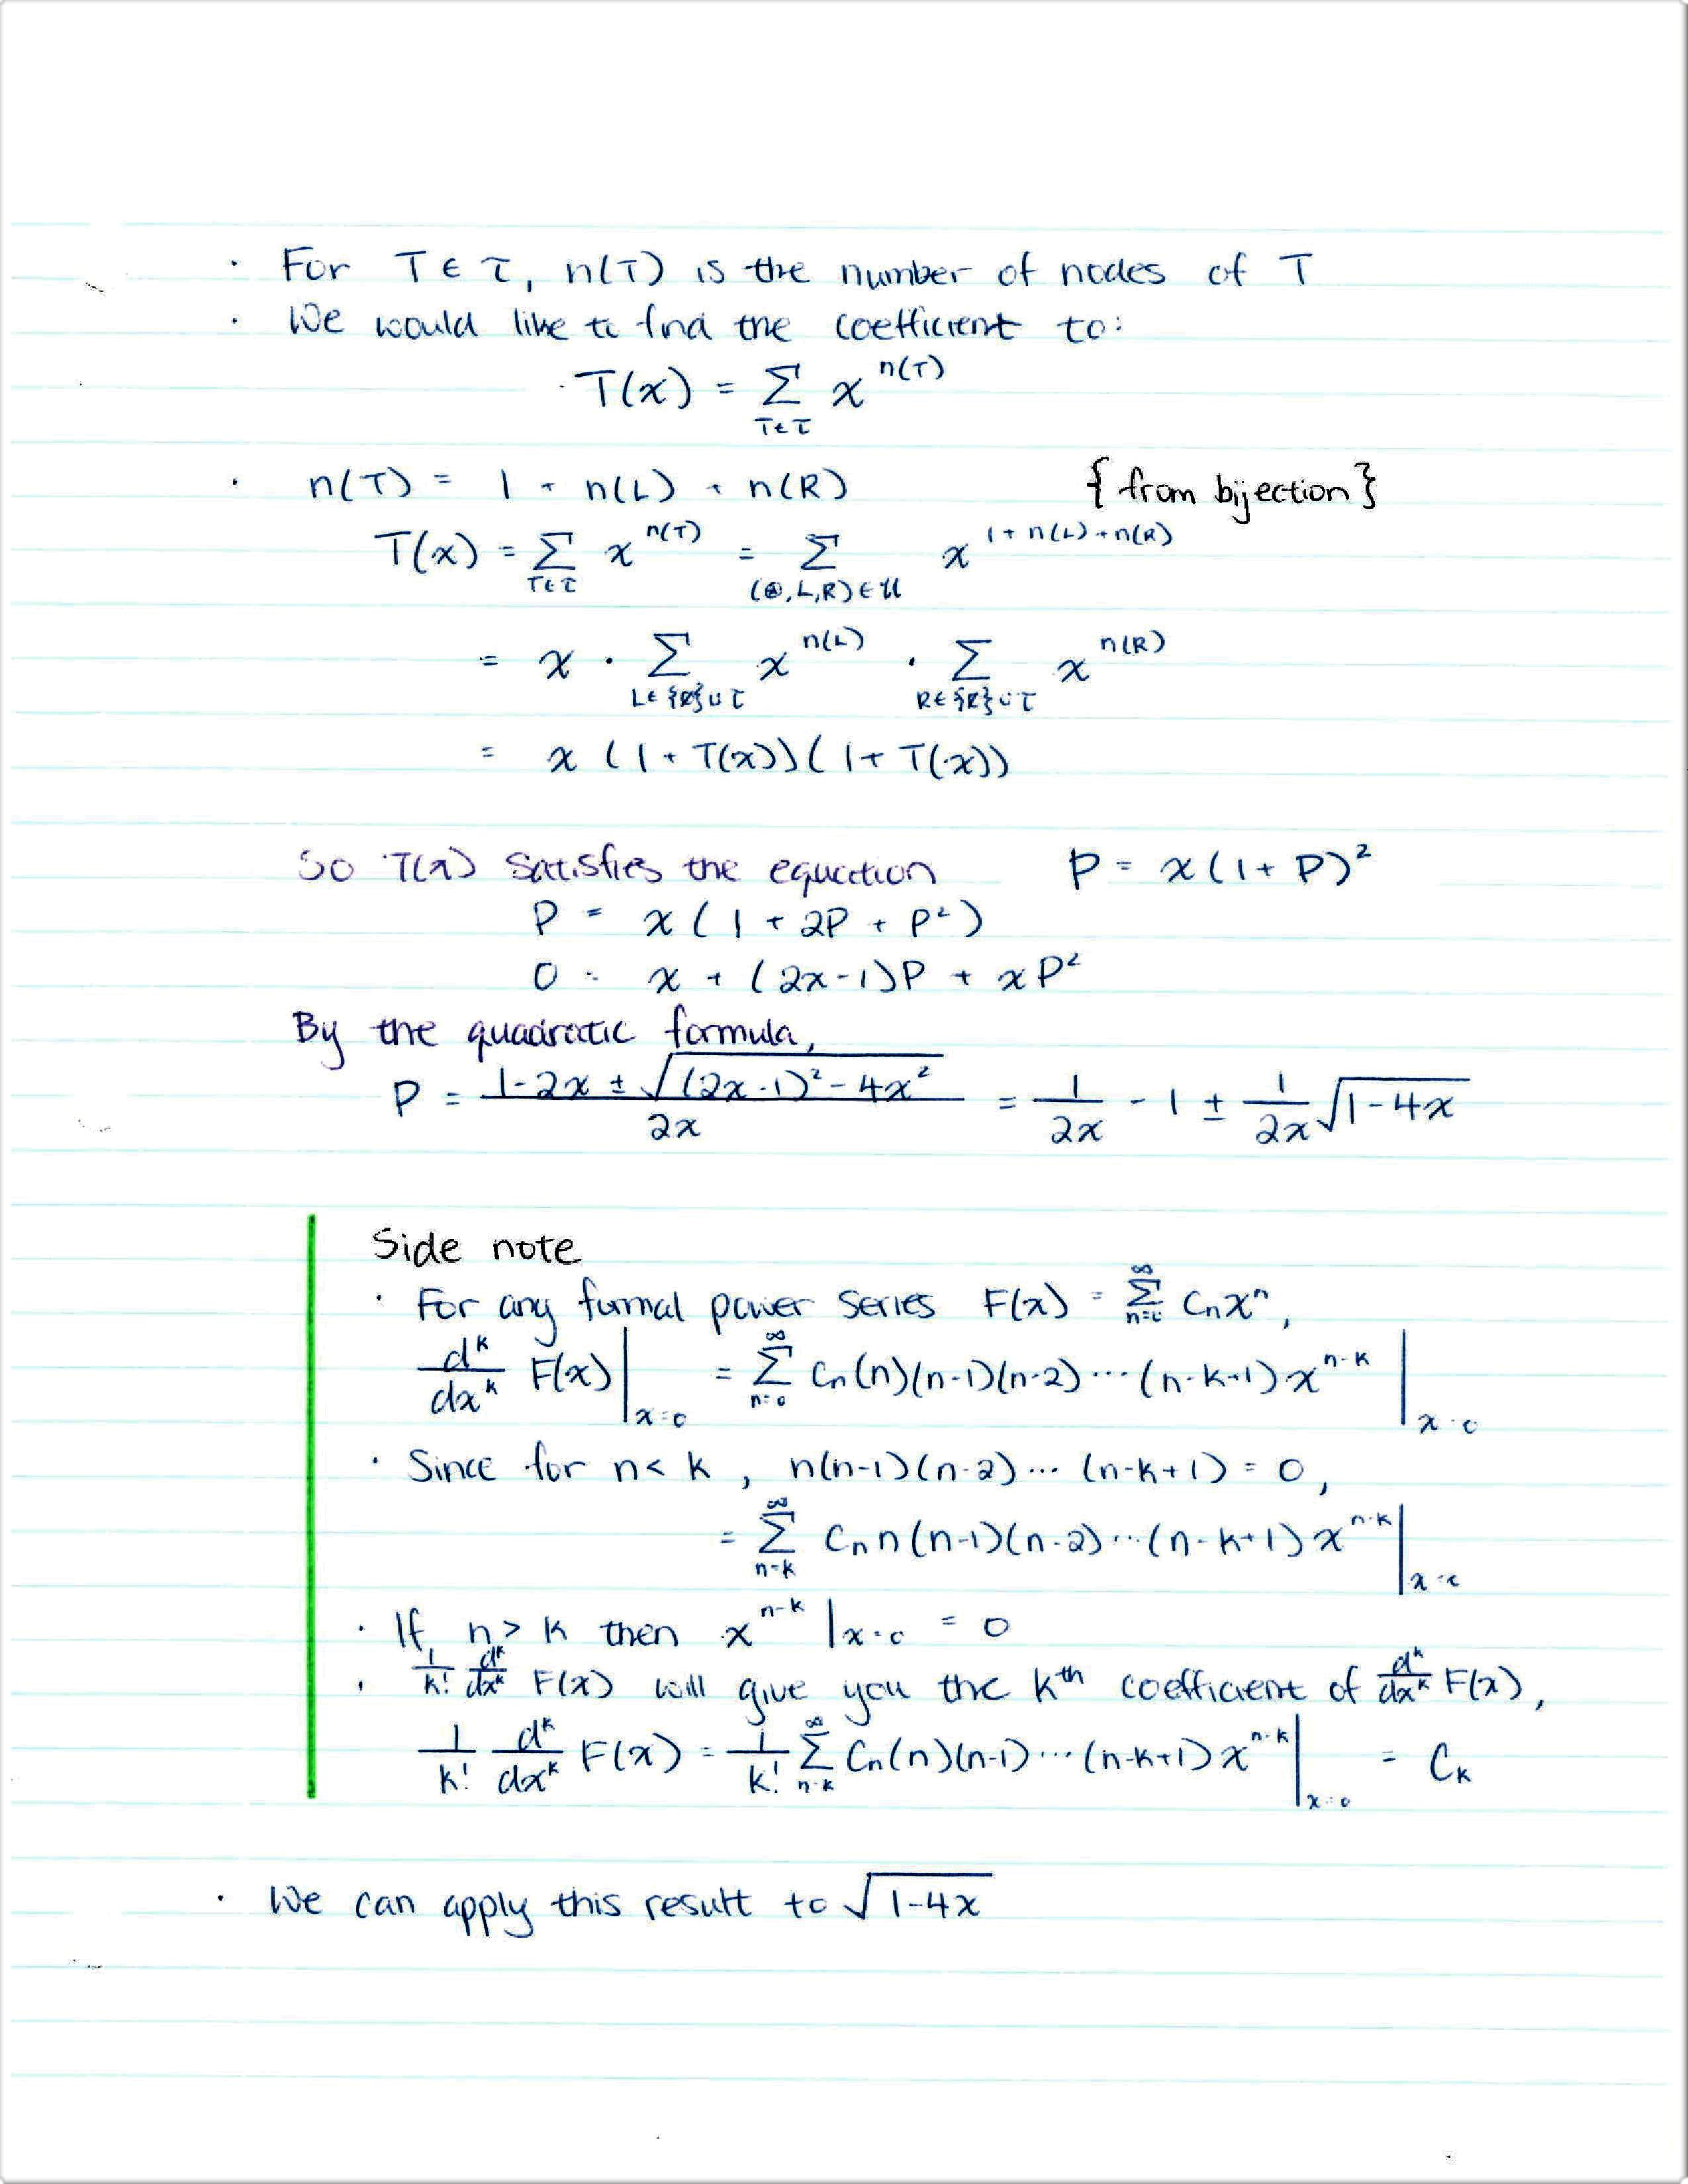 · For T ∈ τ, n(T) is the number of nodes of T
· We would like to find the coefficient to:
T(x) = Σ_{T∈τ} x^{n(T)}
· n(T) = 1 + n(L) + n(R) {from bijection}
T(x) = Σ_{T∈τ} x^{n(T)} = Σ_{(⊛,L,R)∈U} x^{1+n(L)+n(R)}
= x · Σ_{L∈{∅}∪τ} x^{n(L)} · Σ_{R∈{∅}∪τ} x^{n(R)}
= x (1 + T(x))(1 + T(x))
So T(x) satisfies the equation P = x(1 + P)²
P = x(1 + 2P + P²)
0 = x + (2x-1)P + xP²
By the quadratic formula,
P = \frac{1-2x ± √((2x-1)² - 4x²)}{2x} = \frac{1}{2x} - 1 ± \frac{1}{2x}√(1-4x)
Side note
· For any formal power series F(x) = Σ_{n=0}^{∞} C_n x^n,
\frac{d^k}{dx^k} F(x)|_{x=0} = Σ_{n=0}^{∞} C_n(n)(n-1)(n-2)···(n-k+1)x^{n-k} |_{x=0}
· Since for n<k, n(n-1)(n-2)···(n-k+1) = 0,
= Σ_{n=k}^{∞} C_n n(n-1)(n-2)···(n-k+1)x^{n-k}|_{x=0}
· If n > k then x^{n-k}|_{x=0} = 0
· \frac{1}{k!} \frac{d^k}{dx^k} F(x) will give you the k^{th} coefficient of \frac{d^k}{dx^k} F(x),
\frac{1}{k!} \frac{d^k}{dx^k} F(x) = \frac{1}{k!} Σ_{n=k}^{∞} C_n(n)(n-1)···(n-k+1)x^{n-k}|_{x=0} = C_k
· We can apply this result to √(1-4x)